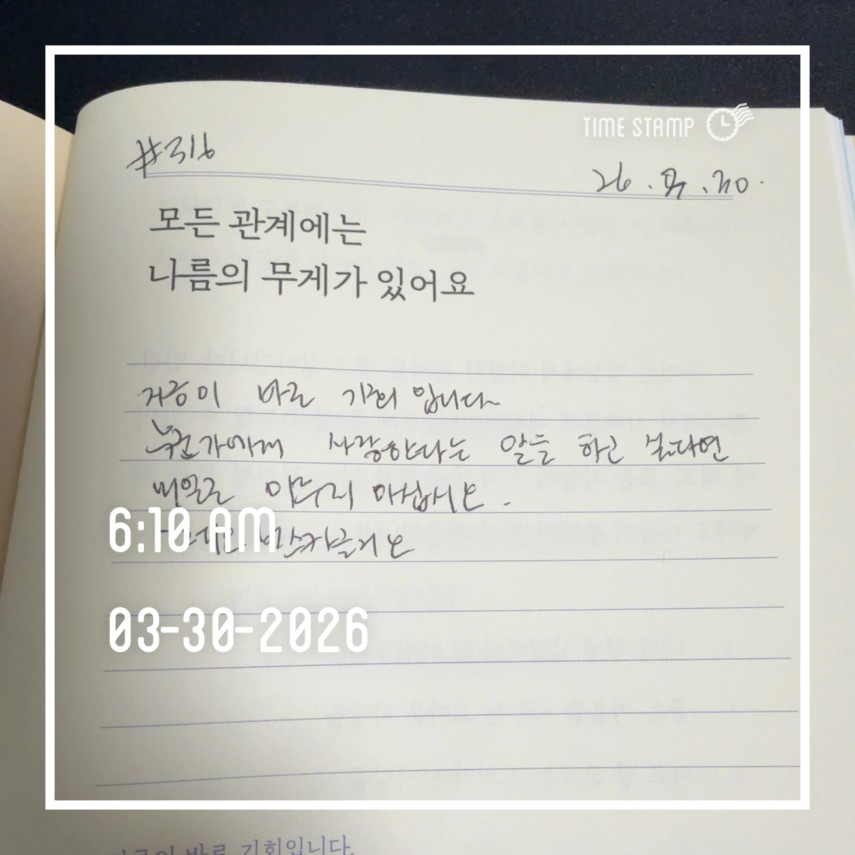 TIME STAMP
#316
26. 3. 30.
모든 관계에는
나름의 무게가 있어요
지금이 바로 기회입니다
누군가에게 사랑한다는 말을 하고 싶다면
내일로 미루지 마십시오.
6:10 AM
03-30-2026
지금이 바로 기회입니다.